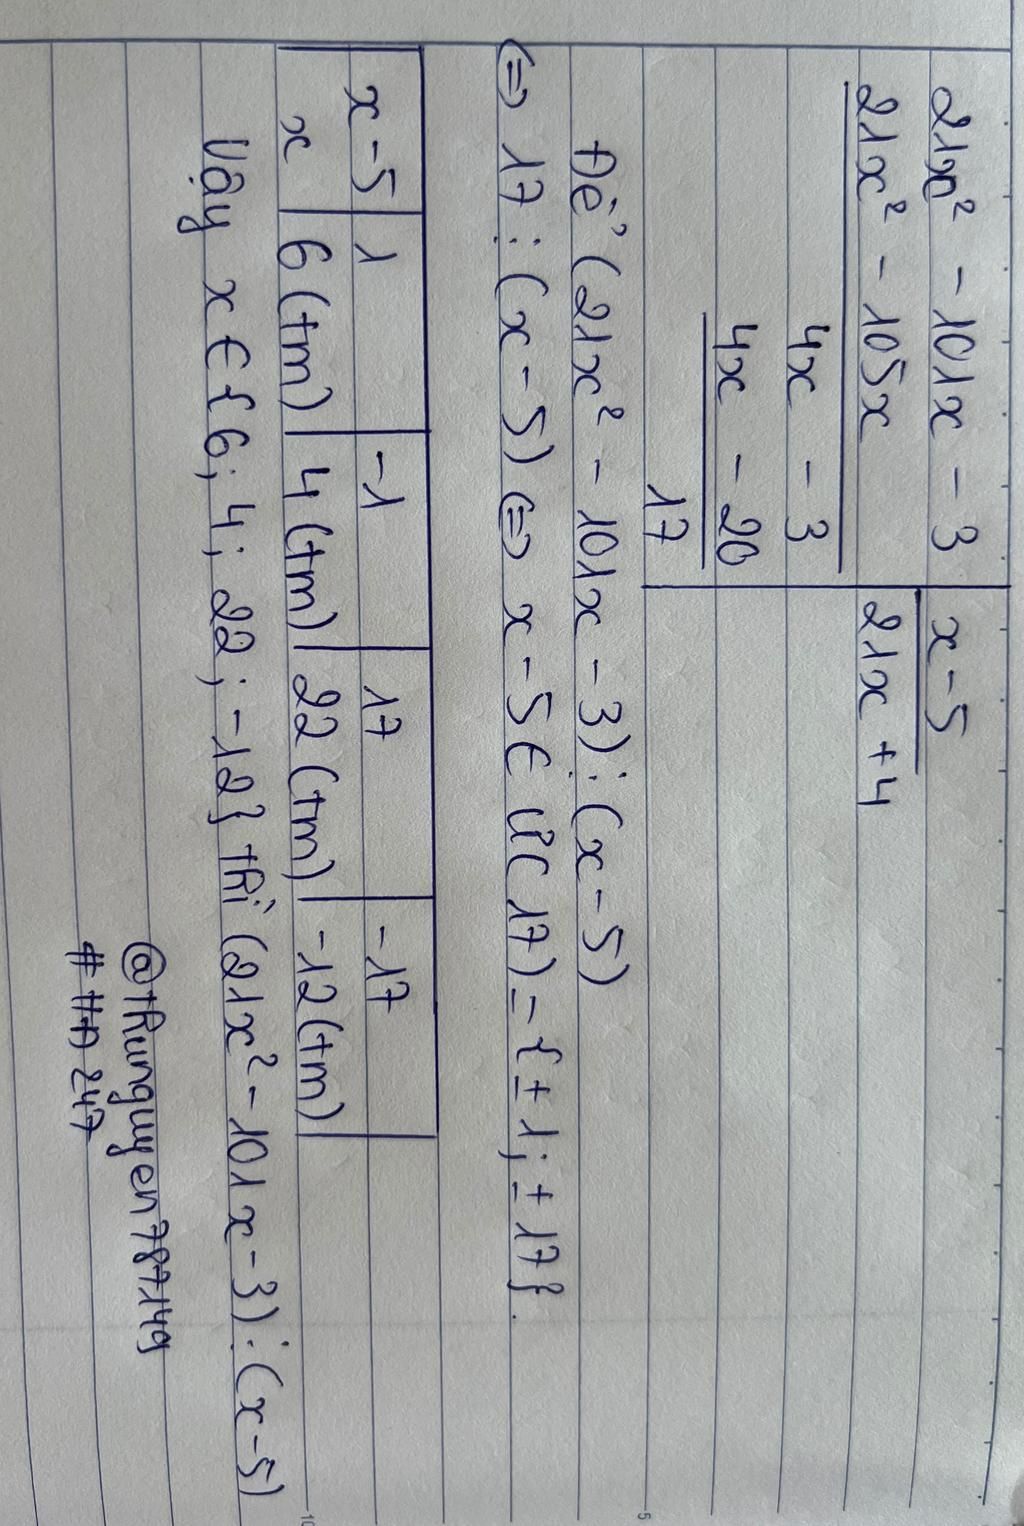 21x² - 101x - 3 | x - 5
21x² - 105x | 21x + 4
4x - 3
4x - 20
17
Để (21x² - 101x - 3) ⋮ (x - 5)
⇔ 17 ⋮ (x - 5) ⇔ x - 5 ∈ Ư(17) = {± 1; ± 17}.
x - 5 | 1 | -1 | 17 | -17
x | 6 (tm) | 4 (tm) | 22 (tm) | -12 (tm)
Vậy x ∈ {6; 4; 22; -12} thì (21x² - 101x - 3) ⋮ (x - 5)
@thunguyen787149
247
5
10